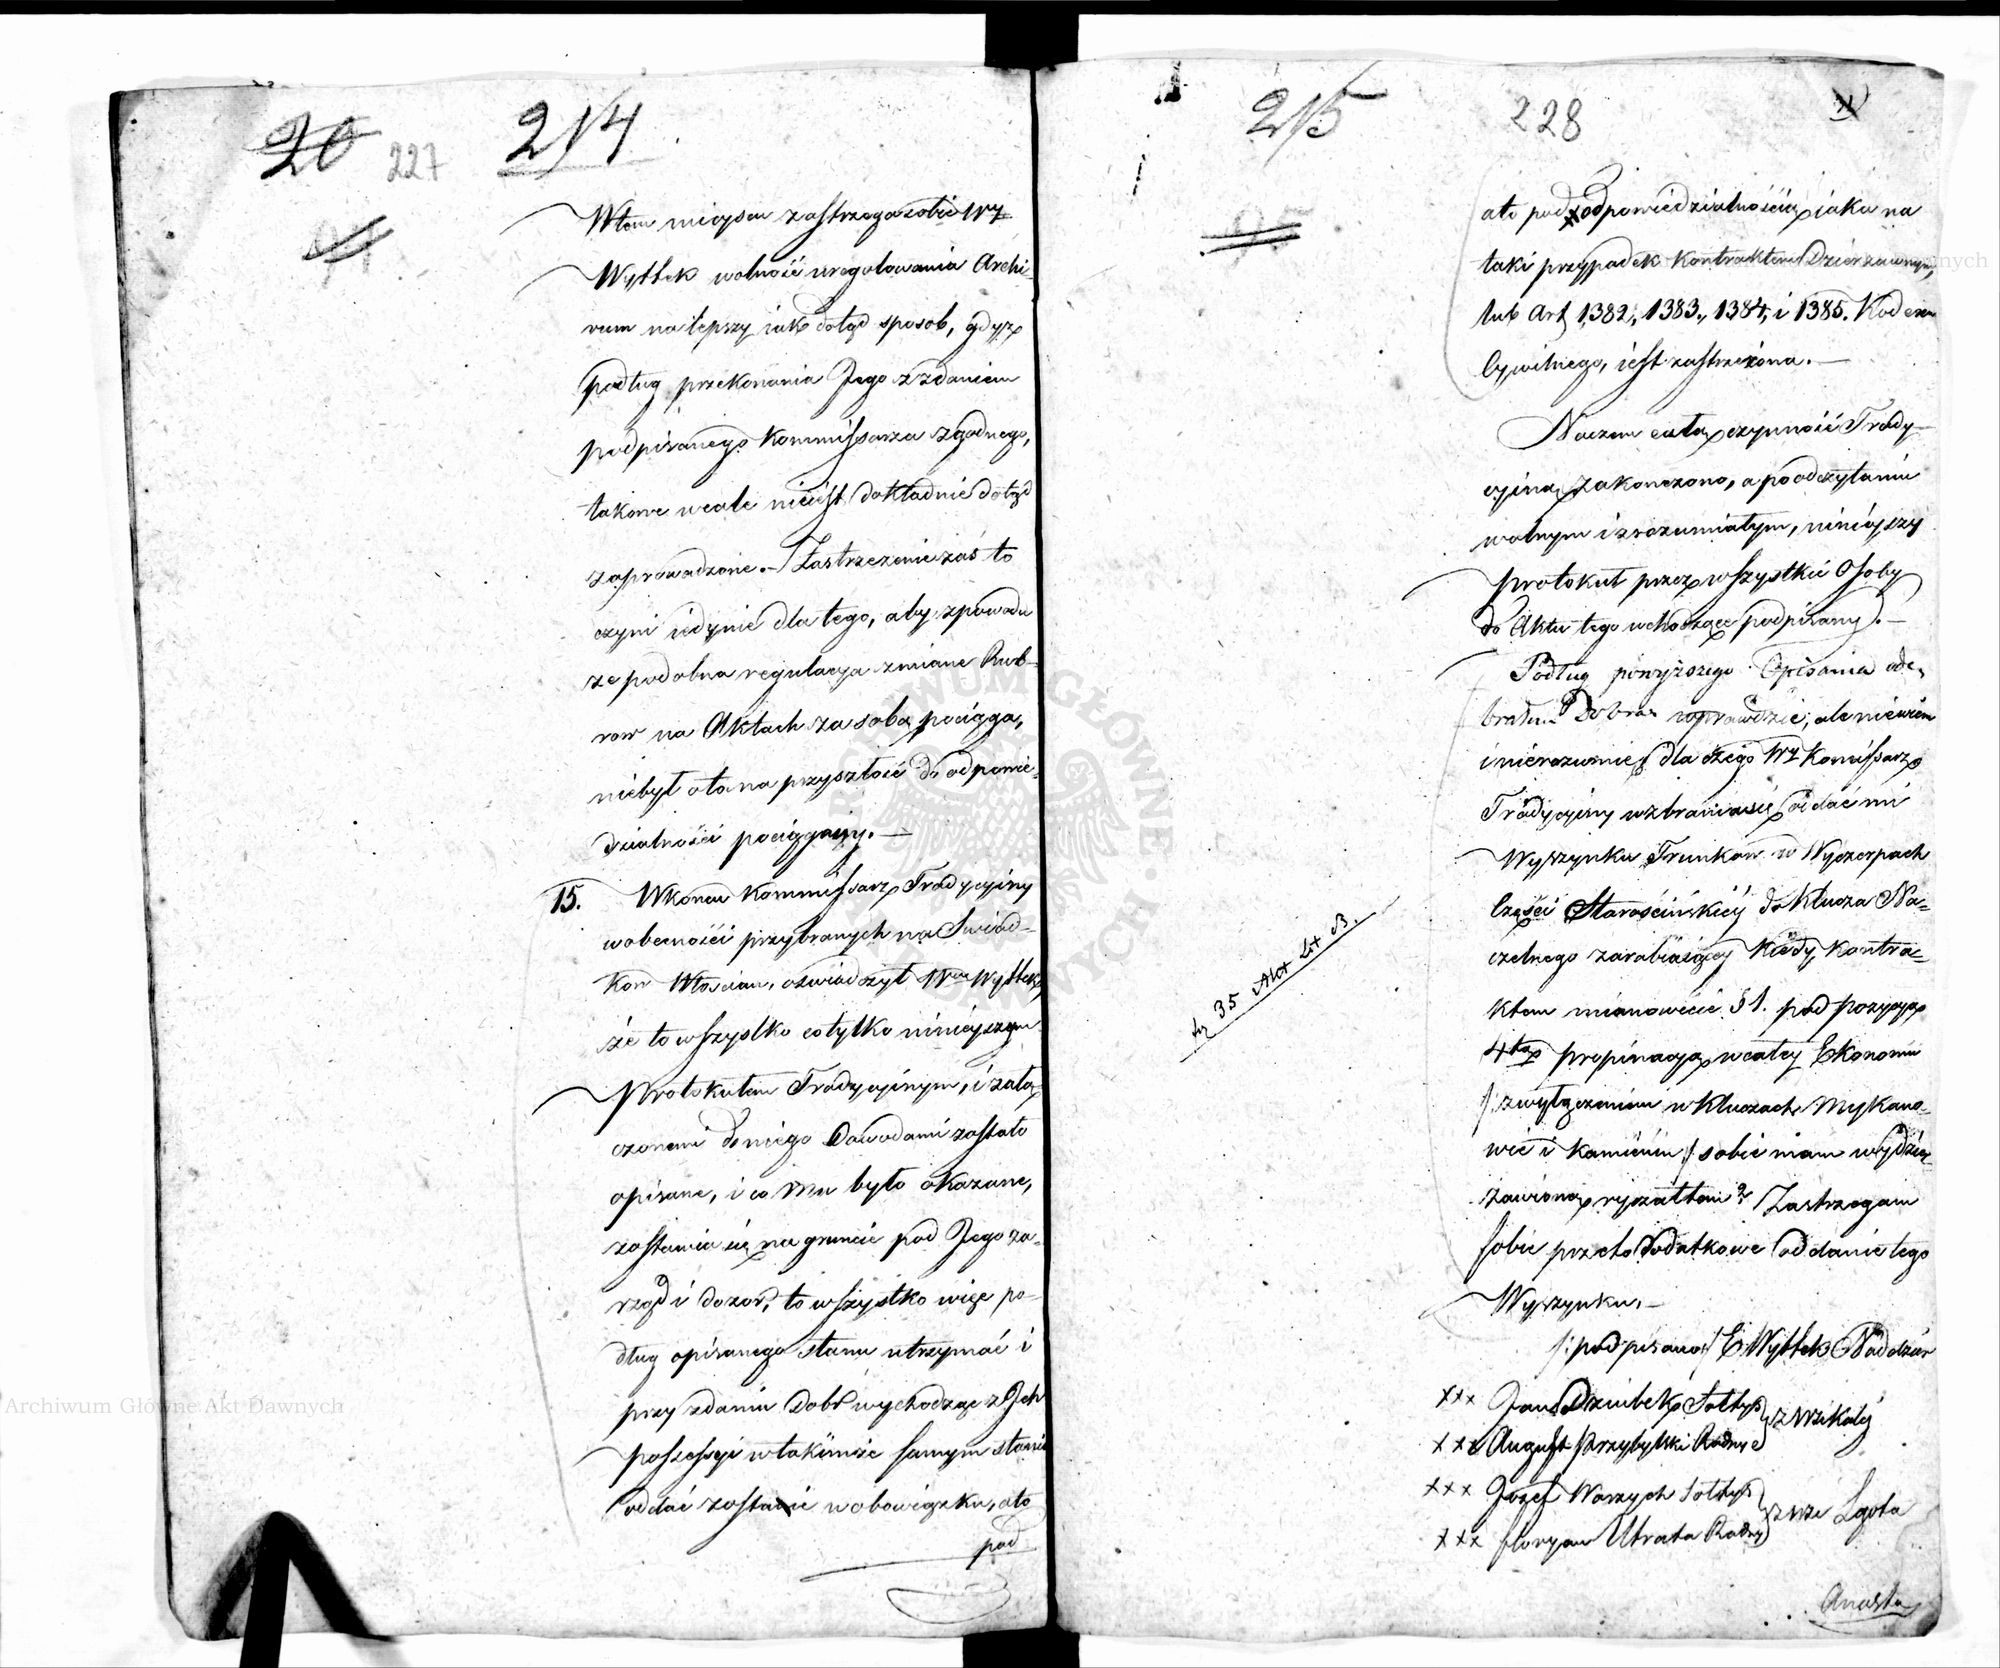 20 227 214
W tem mieyscu zastrzega sobie WJ
Wyttek wolność uregulowania Archi-
vum na lepszy jak dotąd sposob, gdyż
podług przekonania Jego z zdaniem
podpisanego Kommissarza zgodnego,
takowe wcale nieiest dokładnie dotąd
zaprowadzone. – Zastrzezenie zaś to
czyni iedynie dla tego, aby z powodu
ze podobna regulacya zmianę Rub-
row na Aktach za sobą pociąga,
niebył oto na przyszłość do odpowie-
dzialności pociągany. —
15. W koncu Kommissarz Tradycyiny
w obecności przybranych na Swiad-
kow Włoscian, oświadczył Wmu Wyttek,
że to wszystko co tylko ninieyszym
Protokułem Tradycyinym, i załą-
czonemi do niego Dowodami zostało
opisane, i co Mu było okazane,
zostawia się na gruncie pod Jego za-
rząd i dozor, to wszystko więc po-
dług opisanego stanu utrzymać i
przy zdaniu Dobr wychodząc z Jch
possessyi w takimże samym stanie
oddać zostanie w obowiązku, ato
pod
215 228
ato pod odpowiedzialnością iaka na
taki przypadek Kontraktem Dzierzawnym,
lub Art 1382, 1383, 1384, i 1385. Kodexu
Cywilnego, iest zastrzezona. —
Na czem całą czynność Trady-
cyiną zakonczono, a po odczytaniu
wolnym i zrozumiałym, ninieyszy
Protokuł przez wszystkie Osoby
do Aktu tego wchodzące podpisany. —
Podług powyższego Opisania ode-
brałem Dobra wprawdzie, ale niewiem
i nierozumiem dla czego WJ Komissarz
Tradycyiny wzbrania się oddać mi
Wyszynku Trunkow w Wyczerpach
Części Starościńskiey do Klucza Na-
czelnego zarabiaiącey kiedy Kontra-
ktem mianowicie § 1. pod pozycyą
4tą propinacyą w całey Ekonomii
/: z wyłączeniem w Kluczach Mykano-
wie i Kamieniu :/ sobie mam wydzier-
zawioną ryczałtem? Zastrzegam
sobie przeto dodatkowe oddanie tego
Wyszynku. —
ty 35 Akt Lit B.
/: podpisano :/ E. Wyttek Naddzier
xxx Jan Dziubek Sołtys } z Wsi Kały
xxx August Przybylski Radny
xxx Jozef Warzych Sołtys } z wsi Lgota
xxx floryan Utrata Radny
Anasta
Archiwum Główne Akt Dawnych